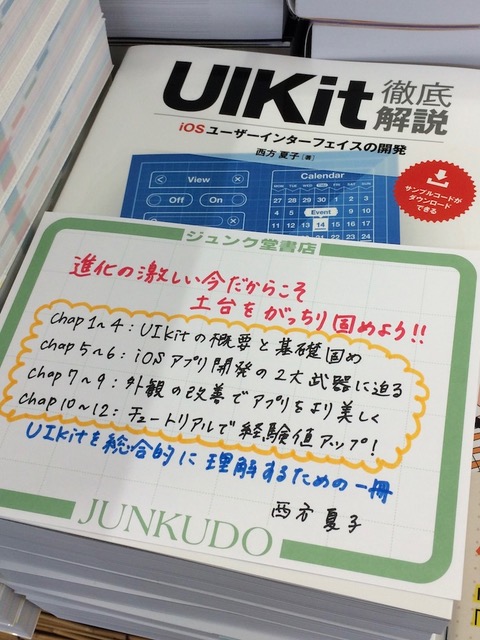 UIKit 徹底解説
iOSユーザーインターフェイスの開発
西方夏子[著]
サンプルコードが
ダウンロード
できる
View
Off On
Calendar
MON TUE WED THU FRI SAT SUN
27 28 29 30 1 2 3
4 5 Event 9 10
11 12 13 14 15 16 17
ジュンク堂書店
進化の激しい今だからこそ
土台をがっちり固めよう!!
Chap 1~4:UIKitの概要と基礎固め
chap 5~6:iOSアプリ開発の2大武器に迫る
chap 7~9:外観の改善でアプリをより美しく
chap 10~12:チュートリアルで経験値アップ!
UIKitを総合的に理解するための一冊
西方 夏子
JUNKUDO